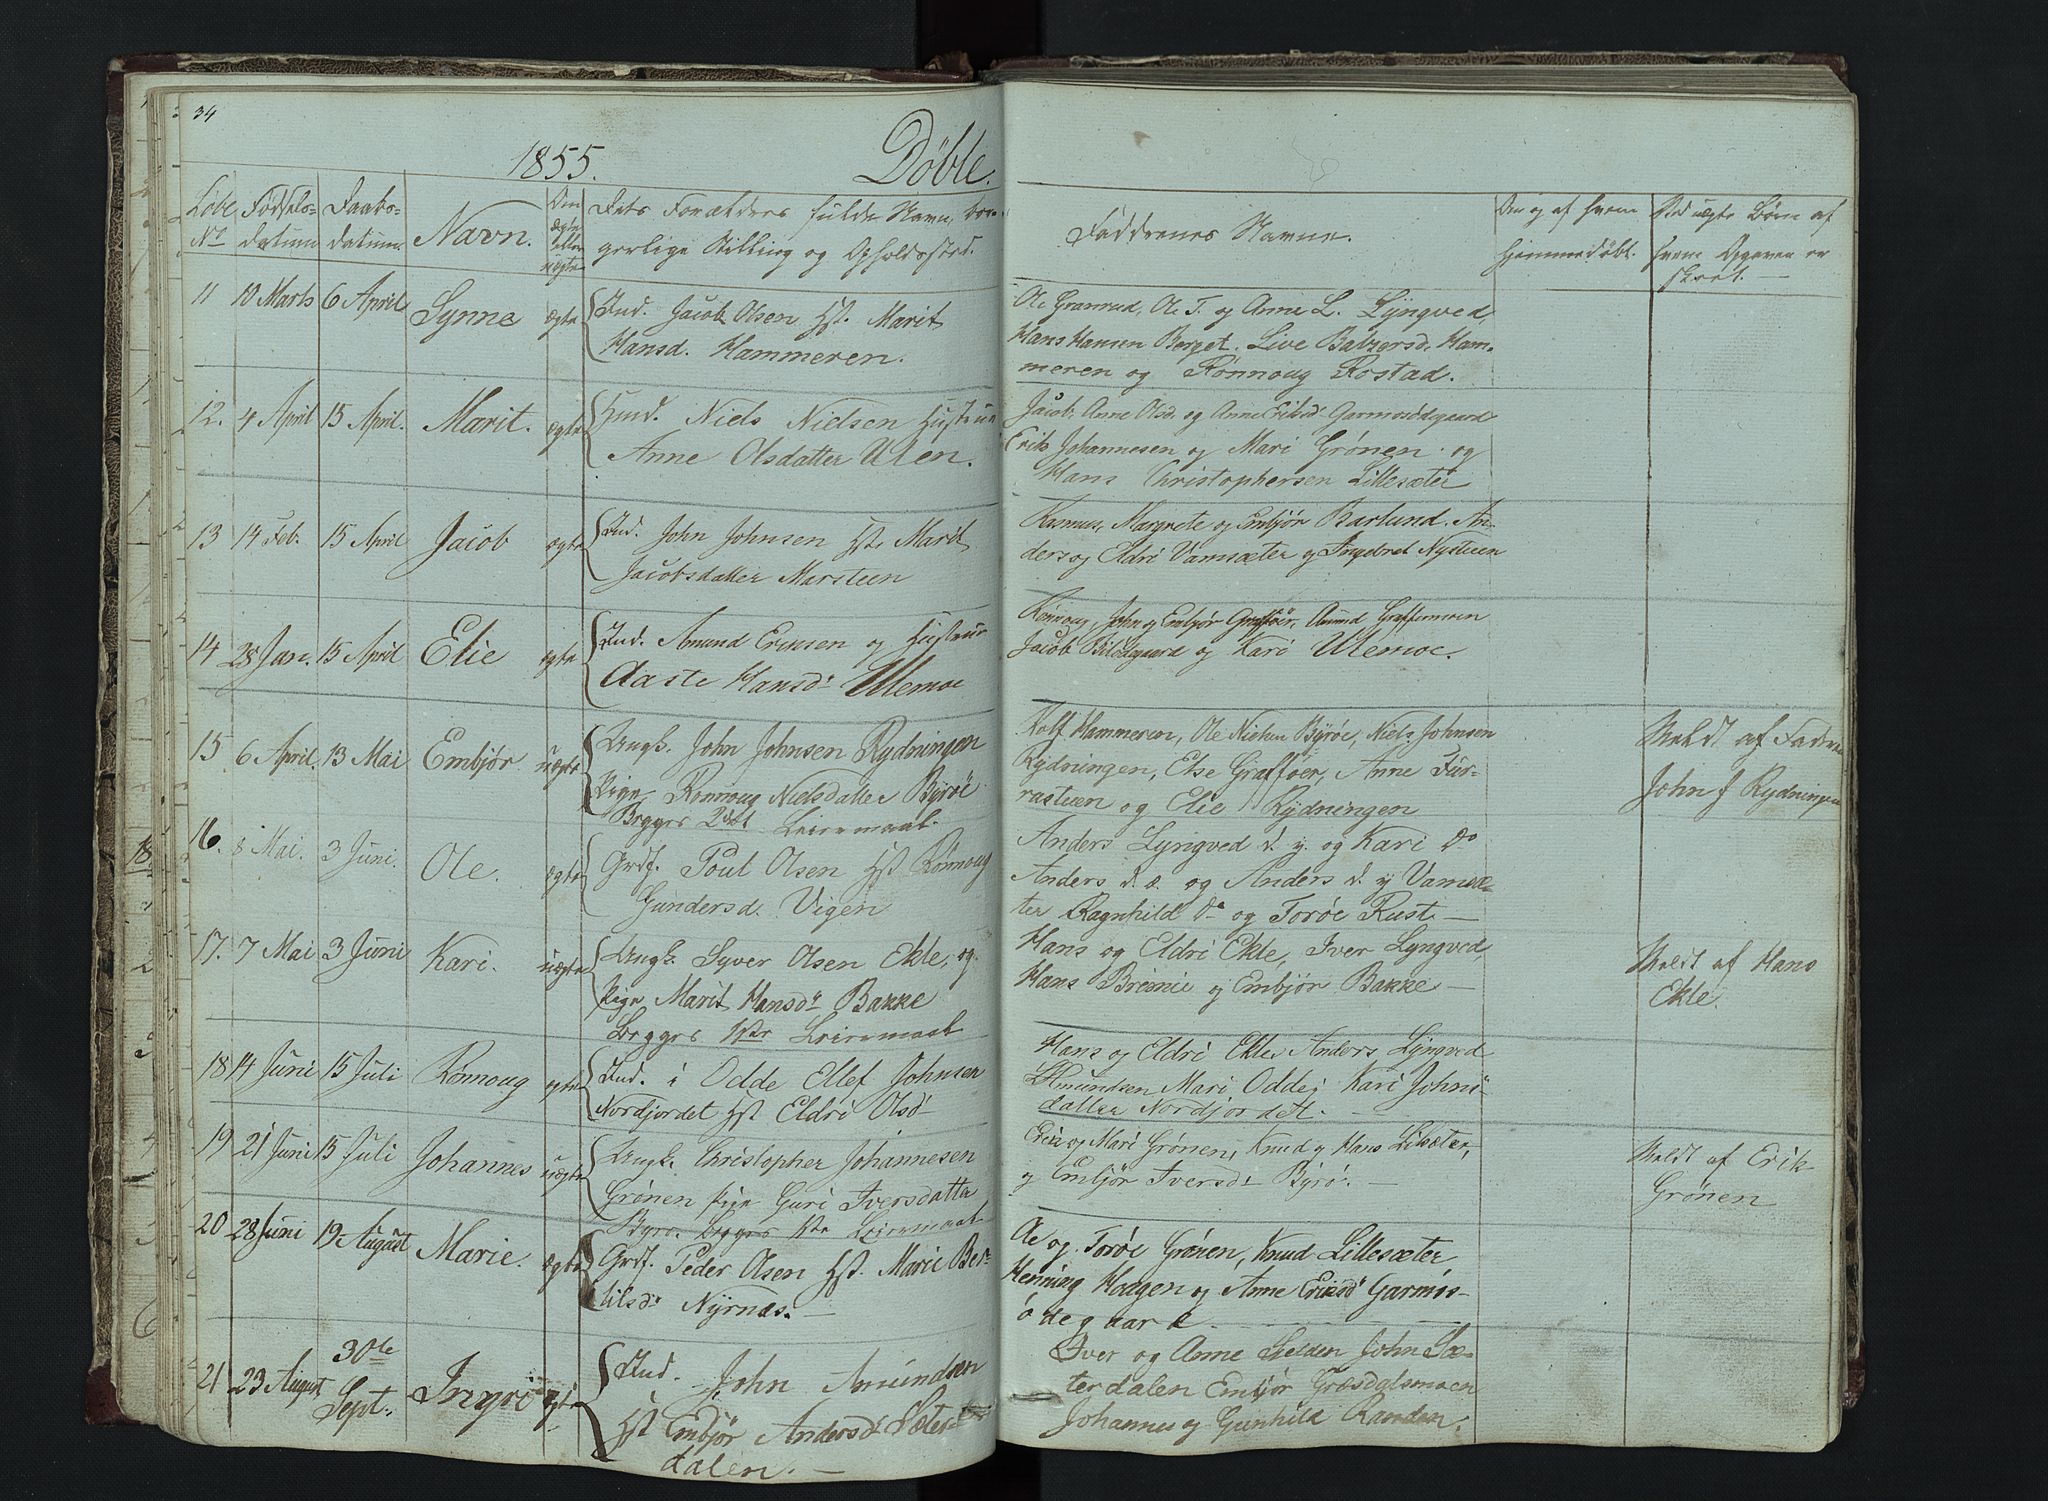 34
1855.
Døbte.
Løbe Fødsels- Daabs- Navn. Den Dets Forældres fulde Navn, bor-
No datum datum. ægte eller uægte gerlige Stilling og Opholdssted.
Faddrenes Navne.
Om og af hvem Ved uægte Børn af
hjemmedøbt. hvem Opgaven er
skeet.
11 10 Marts 6 April Synne ægte Ind. Jacob Olsen Hst. Marit
Hansd. Hammeren.
Ole Granrud, Ole T. og Anne L. Lyngved,
Hans Hansen Berget. Live Balzersd. Ham-
meren og Rønnoug Rostad.
12. 4 April 15 April. Marit. ægte Hmd. Niels Nielsen Hustrue
Anne Olsdatter Ulen.
Jacob, Anne Olsd. og Anne Eriksd. Garmosødegaard
Erik Johannesen og Mari Grønen og
Hans Christophersen Lillesæter
13 14 Feb. 15 April Jacob ægte Ind. John Johnsen Hst. Marit
Jacobsdatter Marsteen
Rasmus, Margrete og Embjør Barlund. An-
ders og Eldri Vamsæter og Ingebret Nysteen
14 28 Jan. 15 April Elie ægte Ind. Amund Eriksen og Hustrue
Aaste Hansd. Ulemoe
Rønnoug, John og Embjør Graffer, Amund Graffermoen
Jacob og Kari Ulemoe.
15 6 April. 13 Mai Embjør uægte Ungk. John Johnsen Rydningen
Pige Rønnoug Nielsdatter Byrøe
Begges 2det Leiermaal.
Rolf Hammeren, Ole Nielsen Byrøe, Niels Johnsen
Rydningen, Else Graffer, Anne Fur-
rasteen og Elie Rydningen
Meldt af Fadren
John J Rydningen
16. 8 Mai. 3 Juni. Ole. ægte Grdf. Poul Olsen Hst Rønnoug
Gundersd. Vigen
Anders Lyngved d. y. og Kari Do
Anders d. æ. og Anders d. y Vamsæ-
ter Ragnhild Do og Torøe Rust. —
17. 7 Mai 3 Juni Kari. uægte Ungk. Syver Olsen Ekle, og
Pige Marit Hansdr Bakke
Begges 1ste Leiermaal
Hans og Eldri Ekle, Iver Lyngved,
Hans og Embjør Bakke —
Meldt af Hans
Ekle.
18 14 Juni 15 Juli Rønnoug ægte Ind. i Odde Ellef Johnsen
Nordjordet Hst Eldri Olsd
Hans og Eldri Ekle Anders Lyngved
Knundsen, Mari Odde, Kari Johns-
datter Nordjordet. —
19 21 Juni 15 Juli Johannes uægte Ungk. Christopher Johannesen
Grønen Pige Guri Iversdatter
Byrø. begges 1ste Leiermaal
Erik og Mari Grønen, Knud og Hans Lilsæter,
og Embjør Iversd. Byrø. —
Meldt af Erik
Grønen
20 28 Juni 19 August Marie. ægte Grdf. Peder Olsen Hst. Marie Ber-
tilsdr Nyrnæs. —
Ole og Torøe Grønen, Knud Lillesæter
Henning Haagen og Anne Eriksd Garmos-
ødegaard
21 23 August 30te
Sept. Ingri ægte Ind. John Amundsen
Hst Embjør Andersd. Sæter-
dalen. —
Iver og Anne Selden John Sæ-
terdalen Embjør Græsdalsmoen
Johannes og Gunhild Ramden.